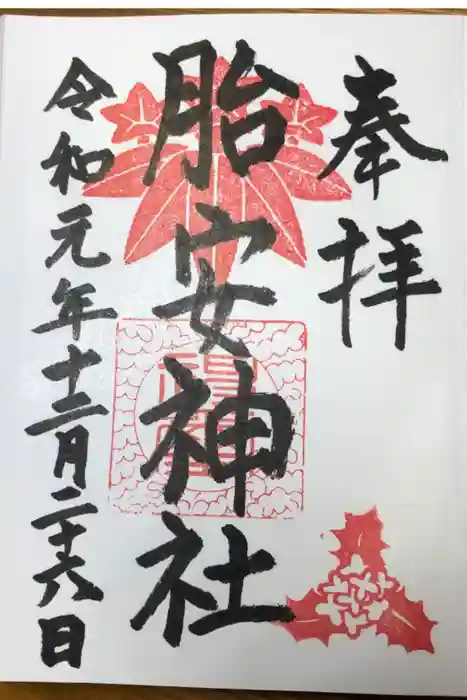 奉拝
胎安神社
令和元年十二月二十六日